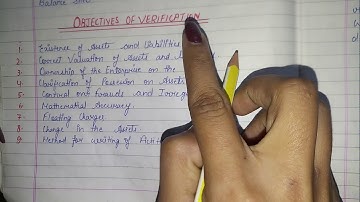 Balance
OBJECTIVES OF VERIFICATION
1. Existence of Assets and Liabilities
2. Correct Valuation of Assets and
3. Ownership of the Enterprise on the
4. Classification of Possession on Assets
5. Control on Frauds and
6. Mathematical Accuracy
7. Floating Charges
8. Change In the Assets
9. Method for writing of